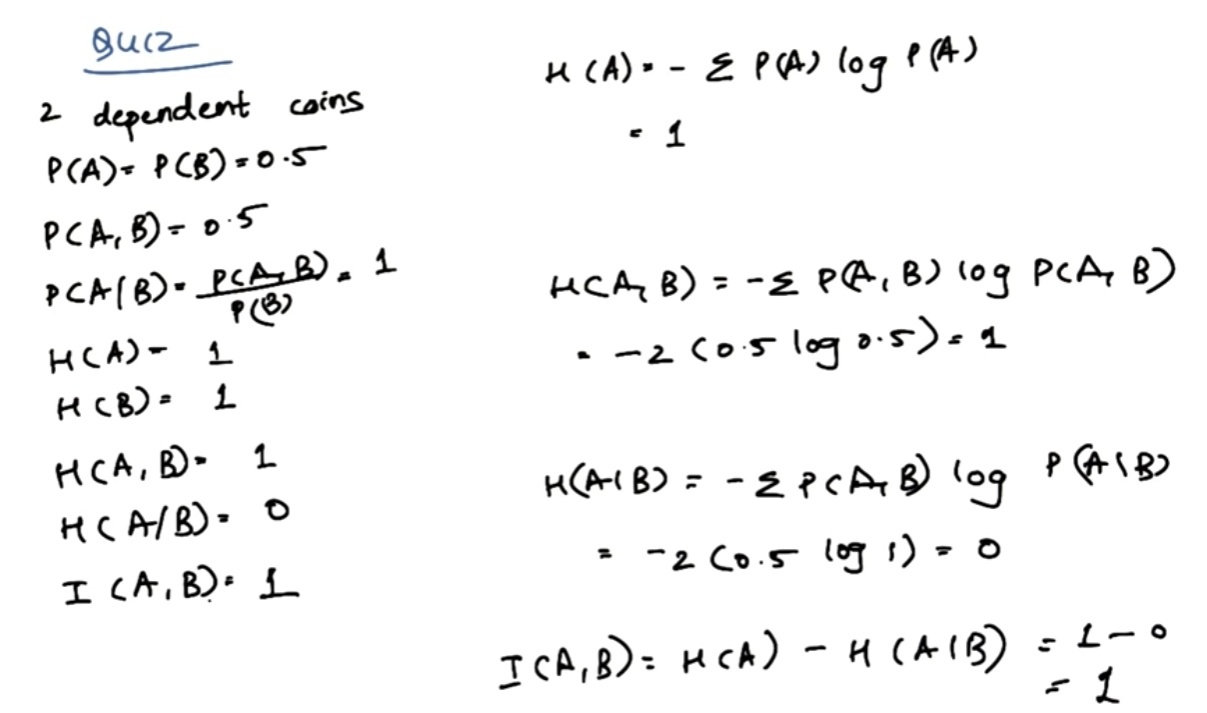 QUIZ
2 dependent coins
P(A) = P(B) = 0.5
P(A, B) = 0.5
P(A|B) = P(A, B) / P(B) = 1
H(A) = 1
H(B) = 1
H(A, B) = 1
H(A/B) = 0
I(A, B) = 1
H(A) = - Σ P(A) log P(A)
= 1
H(A, B) = -Σ P(A, B) log P(A, B)
= -2 (0.5 log 0.5) = 1
H(A|B) = -Σ P(A, B) log P(A|B)
= -2 (0.5 log 1) = 0
I(A, B) = H(A) - H(A|B) = 1 - 0
= 1